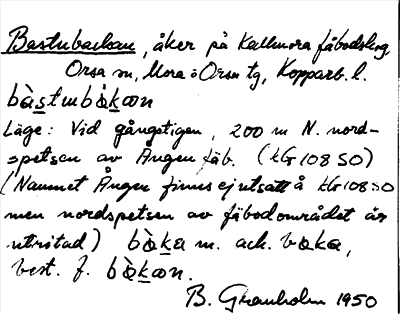 Bastubackan, åker på Kallmora fäbodskog,
Orsa sn, Mora o Orsa tg, Kopparb. l.
Läge: Vid gångstigen, 200 m N. nord-
spetsen av Ången fäb. (KG 108 SO)
(Namnet Ången finns ej utsatt å KG 108 SO
men nordspetsen av fäbodområdet är
utritad) bàka m. ack. baka,
best. f. bàkan.
B. Granholm 1950